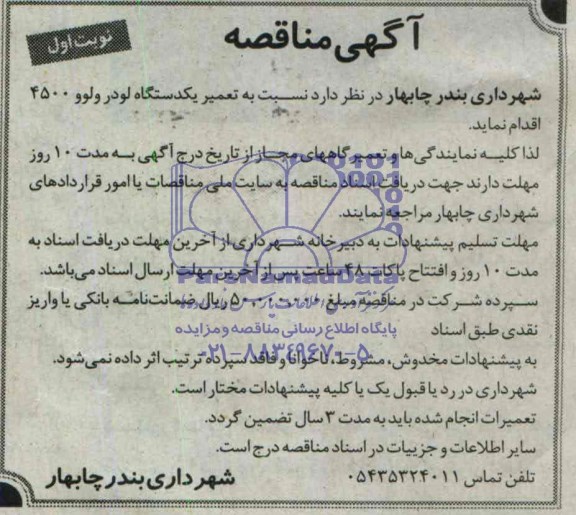 آگهی مناقصه
نوبت اول
شهرداری بندر چابهار در نظر دارد نسبت به تعمیر یکدستگاه لودر ولوو ۴۵۰۰
اقدام نماید.
لذا کلیه نمایندگی ها و تعمیرگاههای مجاز از تاریخ درج آگهی به مدت ۱۰ روز
مهلت دارند جهت دریافت اسناد مناقصه به سایت ملی مناقصات یا امور قراردادهای
شهرداری چابهار مراجعه نمایند.
مهلت تسلیم پیشنهادات به دبیرخانه شهرداری از آخرین مهلت دریافت اسناد به
مدت ۱۰ روز و افتتاح پاکات ۴۸ ساعت پس از آخرین مهلت ارسال اسناد می باشد.
ParsNamadData
سپرده شرکت در مناقصه مبلغ ریال ضمانت نامه بانکی یا واریز
نقدی طبق اسناد
پایگاه اطلاع رسانی مناقصه و مزایده
۰۲۱-۸۸۳۴۹۶۷۰-۵
به پیشنهادات مخدوش، مشروط، ناخوانا و فاقد سپرده ترتیب اثر داده نمی شود.
شهرداری در رد یا قبول یک یا کلیه پیشنهادات مختار است.
تعمیرات انجام شده باید به مدت ۳ سال تضمین گردد.
سایر اطلاعات و جزییات در اسناد مناقصه درج است.
تلفن تماس ۰۵۴۳۵۳۲۴۰۱۱
شهرداری بندر چابهار